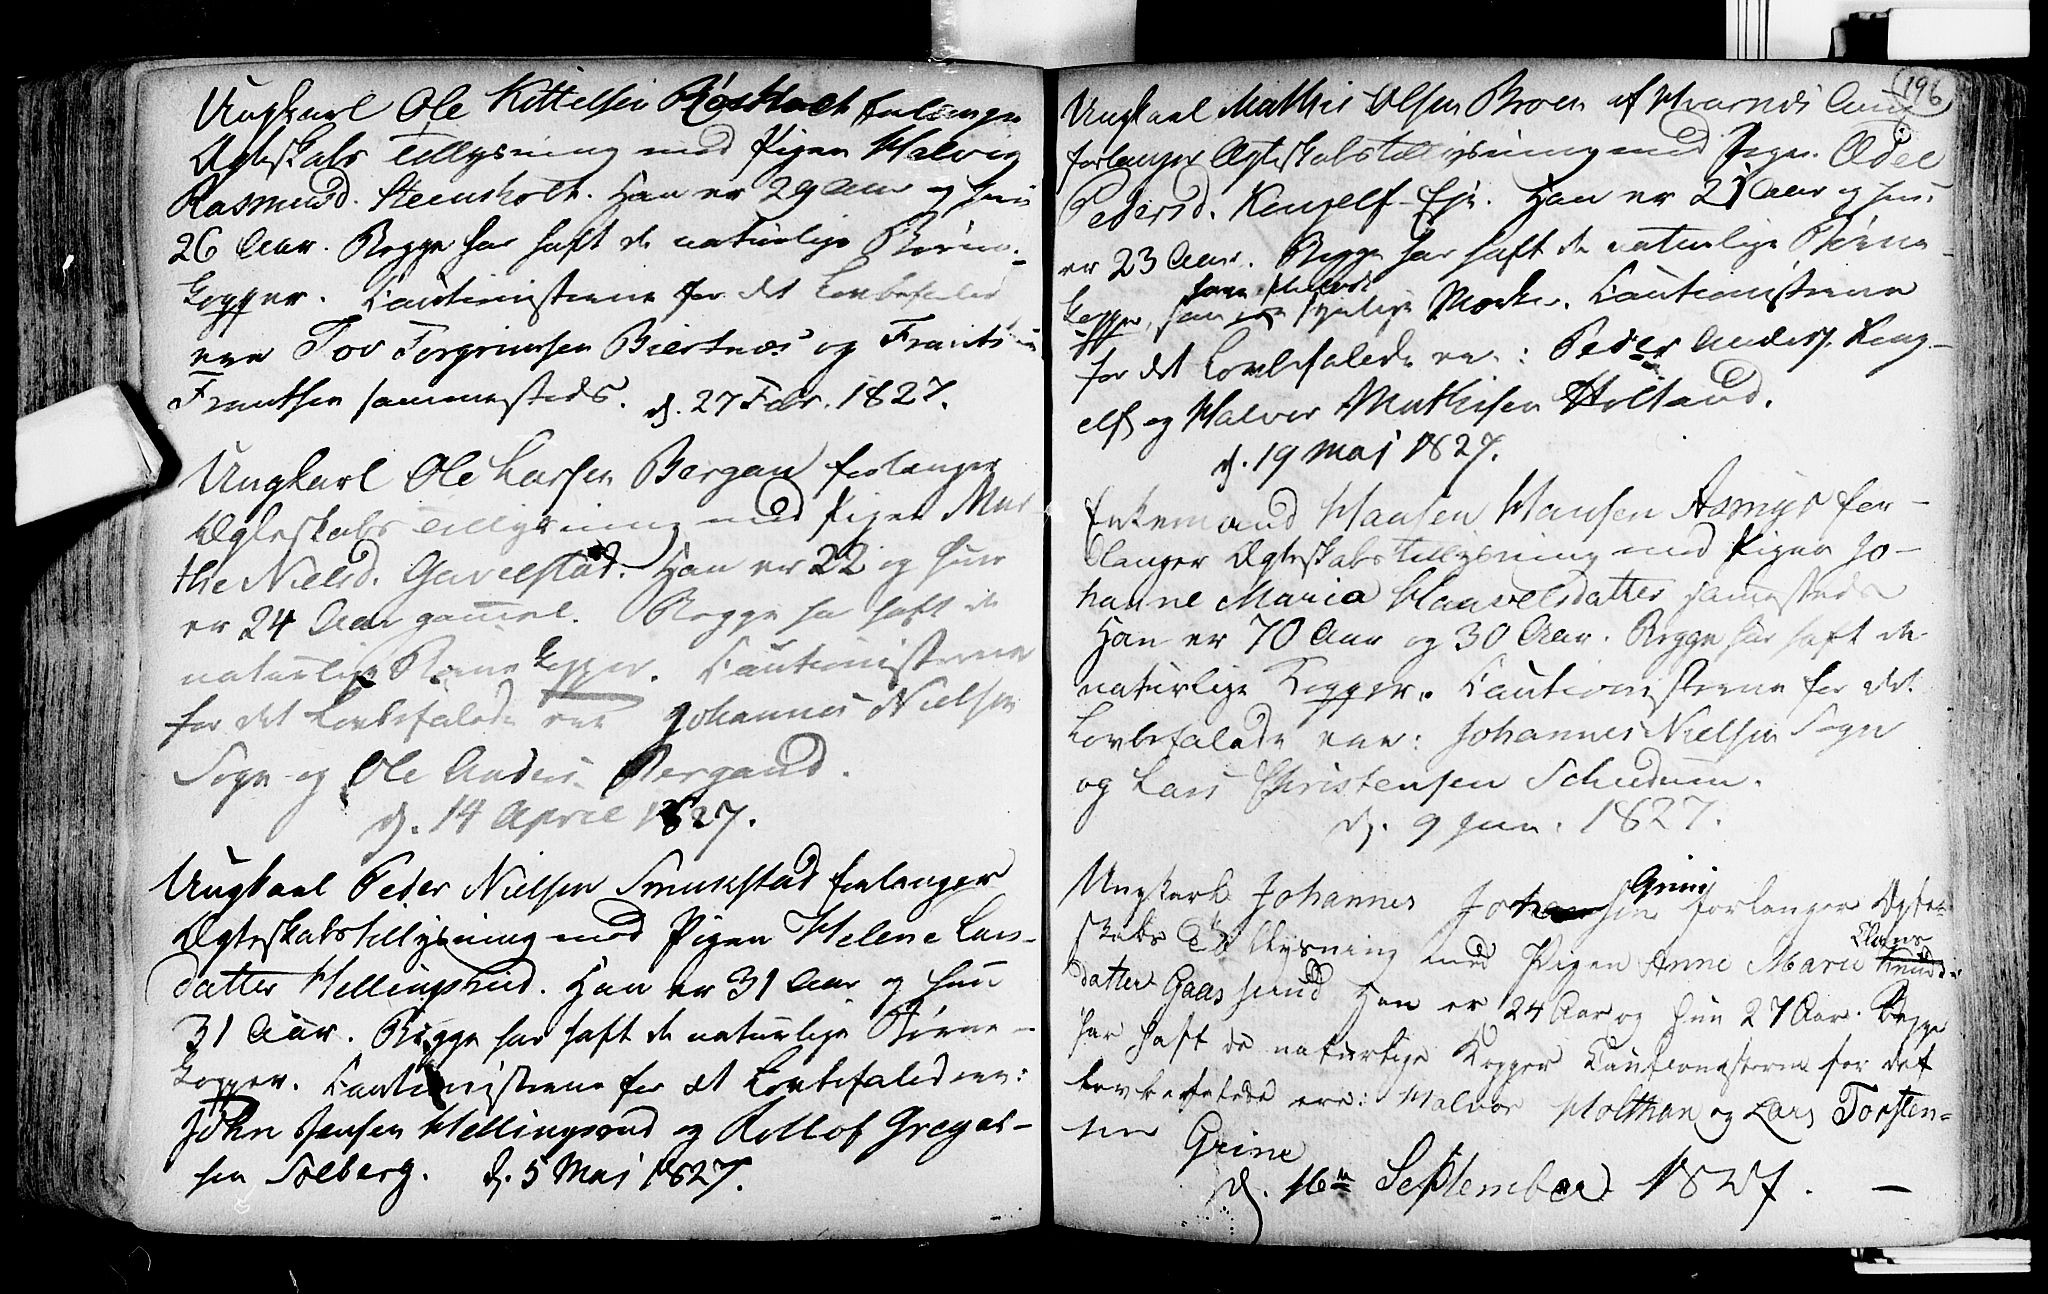 Ungkarl Ole Kittelsen Røsholt forlanger
Ægteskabs Tillysning med Pigen Helvig
Rasmusd. Steensholt. Han er 29 Aar og hun
26 Aar. Begge har haft de naturlige Børne-
Kopper. Cautionisterne for det Lovbefalede
ere Tov Torgrimsen Biertnæs og Frants
Frantsen sammesteds. d. 27 Febr. 1827.
Ungkarl Ole Larsen Bergan forlanger
Ægteskabs Tillysning med Pigen Mar
the Nielsd. Gavelstad. Han er 22 og hun
er 24 Aar gammel. Begge har haft de
naturlige Børnekopper. Cautionisterne
for det Lovbefalede ere Johannes Nielsen
Sogn og Ole Anders. Bergand.
d. 14 April 1827.
Ungkarl Peder Nielsen Smukstad forlanger
Ægteskabstillysning med Pigen Helene Lars-
datter Hellingsrud. Han er 31 Aar og hun
31 Aar. Begge har haft de naturlige Børne-
Kopper. Cautionisterne for det Lovbefalede ere:
John Jensen Hellingsrud og Rollof Greger-
sen Solberg. d. 5 Mai 1827.
196
Ungkarl Mathis Olsen Broen af Hvarnes
forlanger Ægteskabstillysning med Pigen Edel
Pedersd. Kongelf-Eje. Han er 21 Aar og hun
er 23 Aar. Begge har haft de naturlige Børne-
Kopper, synlige Mærker. Cautionisterne
for det Lovbefalede ere: Peder Anders. Kong-
elf og Halvor Mathisen Holtand.
d. 19 Mai 1827.
Enkemand Hansen Hansen Asmyr for-
langer Ægteskabstillysning med Pigen Jo-
hanne Maria Haavelsdatter samesteds
Han er 70 Aar og 30 Aar. Begge har haft de
naturlige Kopper. Cautionisterne for det
Lovbefalede ere: Johannes Nielsen Sogn
og Lars Christensen Schudum.
d. 9 Jun. 1827.
Ungkarl Johannes Johansen Grini forlanger Ægte-
skabs Tillysning med Pigen Anne Marie Clans
datter Gaasserud Han er 24 Aar og hun 27 Aar. Begge
har haft de naturlige Kopper Cautionisterne for det
Lovbefalede ere: Halvor Holthan og Lars Torsten-
sen Grine
d. 16de September 1827. —